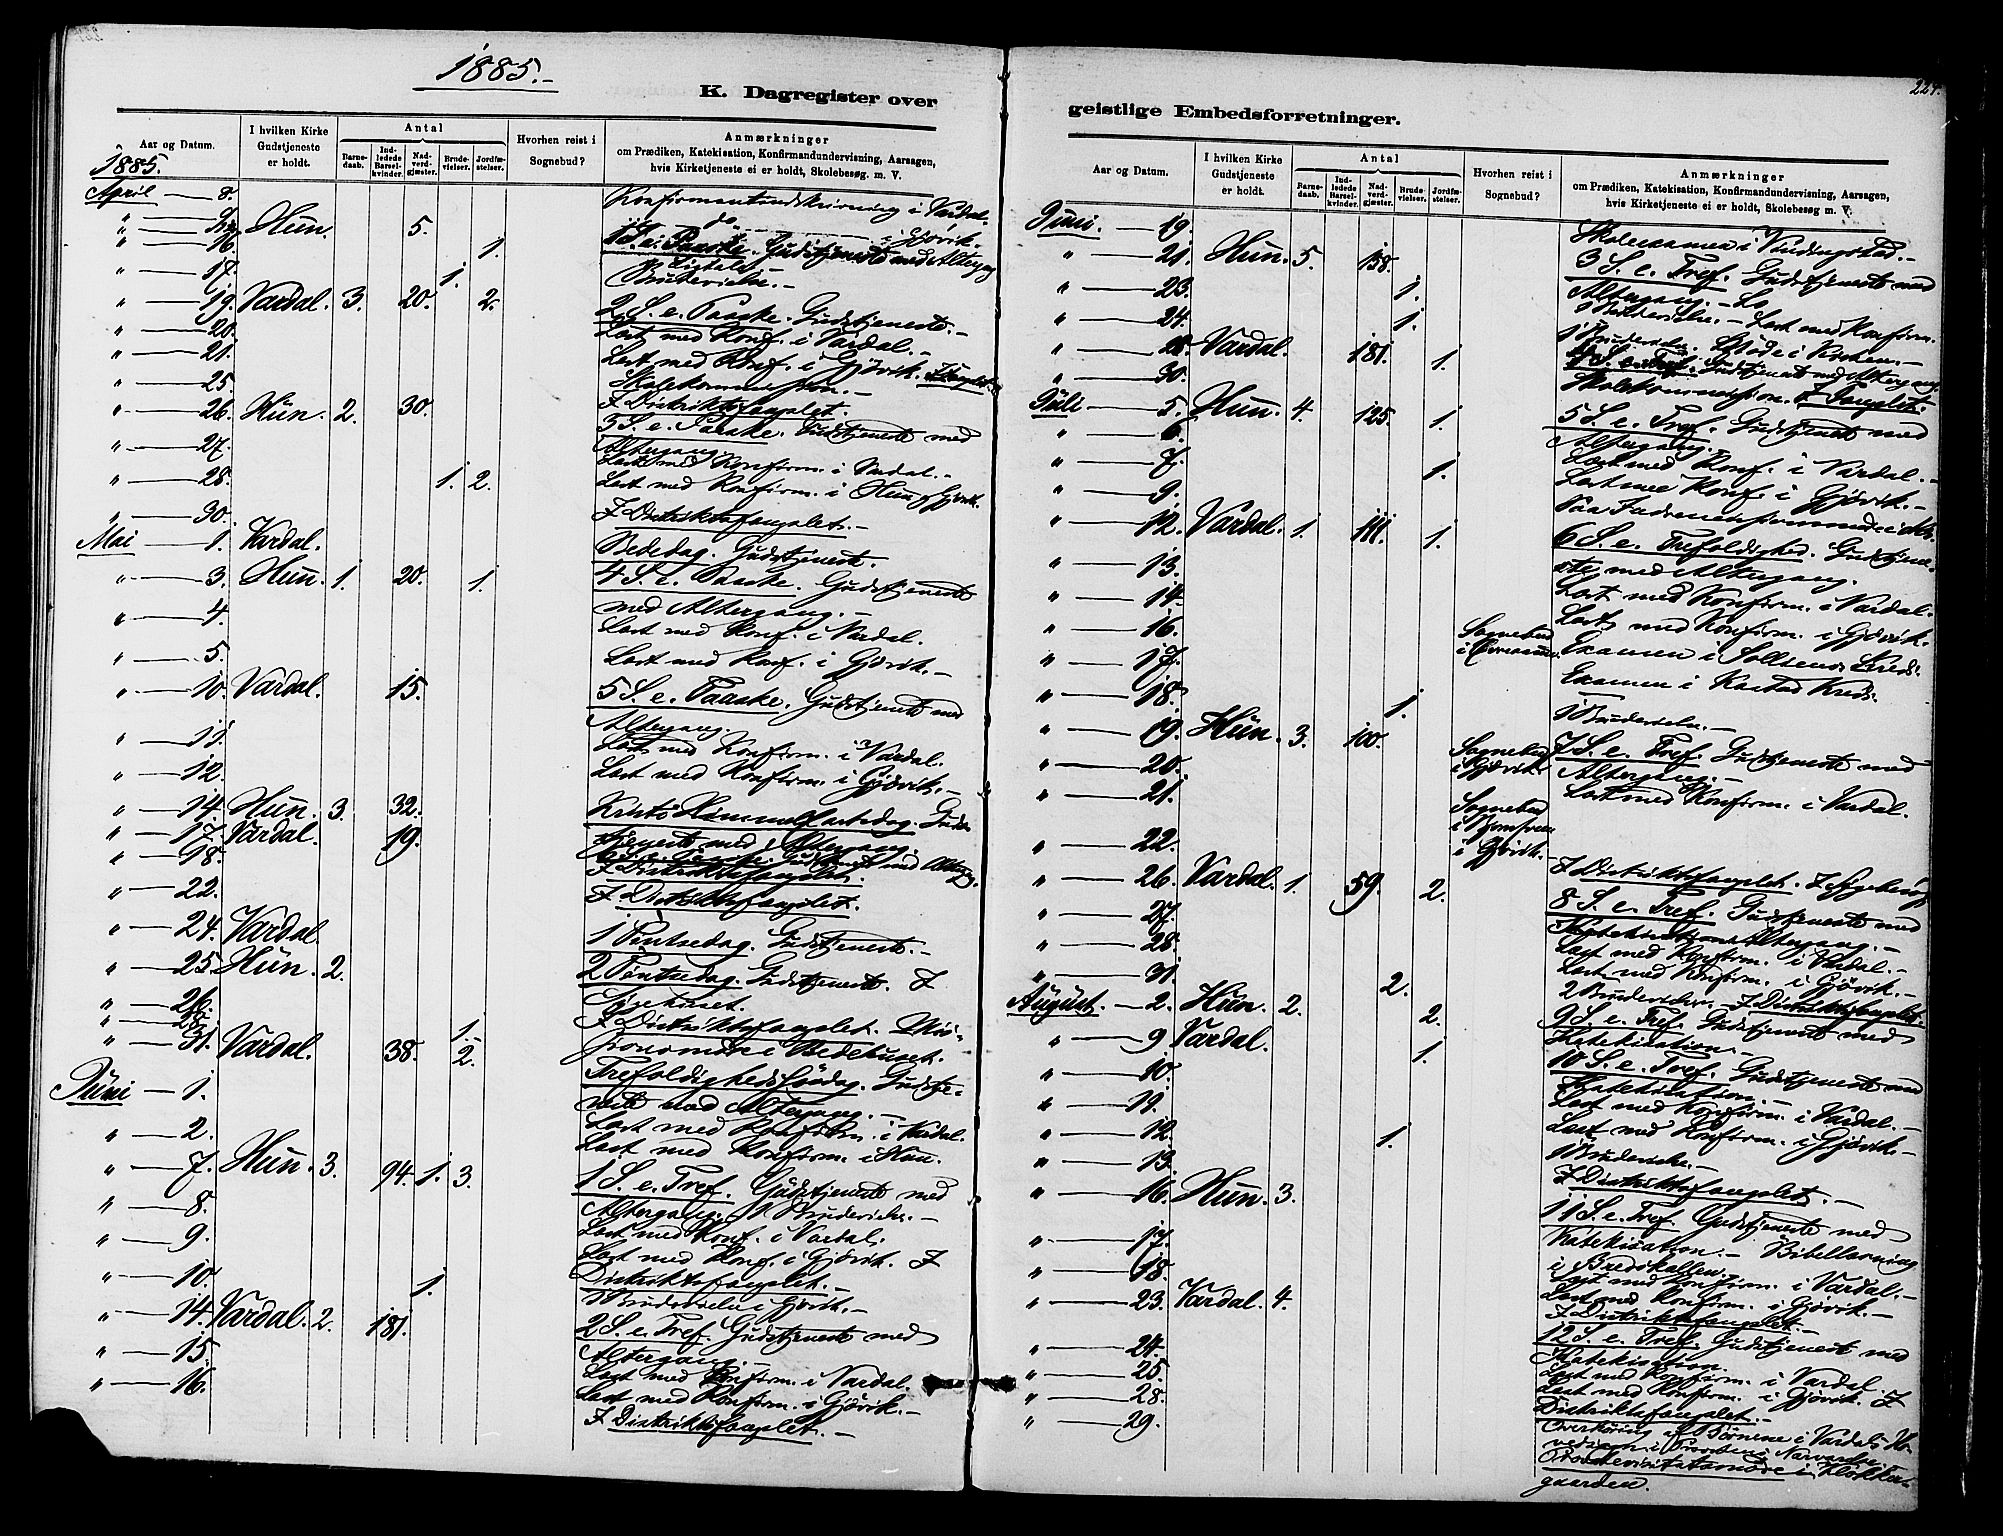 1885.-
224.
K. Dagregister over
geistlige Embedsforretninger.
Aar og Datum.
I hvilken Kirke Gudstjeneste er holdt.
Antal
Barne-daab.
Ind-ledede Barsel-kvinder.
Nad-verd-gjæster.
Brude-vielser.
Jordfæ-stelser.
Hvorhen reist i Sognebud?
Anmærkninger
om Prædiken, Katekisation, Konfirmandundervisning, Aarsagen,
hvis Kirketjeneste ei er holdt, Skolebesøg m. V.
1885.
April — 8. Konfirmantindskrivning i Vardal.
Hun. 5. do i Gjøvik.
" — 16. 1. 1 S. e. Paaske. Gudstjeneste med Altergang
" — 17. 1. Brudevielse.-
" — 19. Vardal. 3. 20. 2. 2 S. e. Paaske. Gudstjeneste.-
" — 20. Læst med Konf. i Vardal.-
" — 21. Læst med Konf. i Gjøvik.
" — 25. Skolekommission.-
" — 26. Hun. 2. 30. I Distriktsfængslet.
3 S. e. Paaske. Gudstjeneste med
" — 27. Altergang.
Læst med Konfirm. i Vardal.-
" — 28. 1. 2. Læst med Konfirm. i Hun, Gjøvik.
" — 30. I Distriktsfængslet.-
Mai — 1. Vardal. Bededag. Gudstjeneste.
" — 3. Hun. 1. 20. 1. 4 S. e. Paaske. Gudstjeneste
med Altergang.-
" — 4. Læst med Konf. i Vardal.
" — 5. Læst med Konf. i Gjøvik.-
" — 10. Vardal. 15. 5 S. e. Paaske. Gudstjeneste med
Altergang.
" — 11. Læst med Konfirm. i Vardal.
" — 12. Læst med Konfirm. i Gjøvik.-
" — 14. Hun. 3. 32. Kristi Himmelfartsdag. Guds-
" — 17. Vardal. 19. tjeneste med Altergang.
" — 18. I Distriktsfængslet.
" — 22. I Distriktsfængslet.
" — 24. Vardal 1 Pintsedag. Gudstjeneste.-
" — 25. Hun. 2. 2 Pintsedag. Gudstjeneste. I
Sygehuset.
" — 26. I Distriktsfængslet. Mis-
" — 28. 1.
" — 31. Vardal. 38. 2. sionsmøde i Bedehuset.
Trefoldighedssøndag. Gudstje-
Juni — 1. neste med Altergang.-
Læst med Konfirm. i Vardal.
" — 2. Læst med Konfirm. i Hun.
" — 7. Hun. 3. 94. 1. 3. 1 S. e. Tref. Gudstjeneste med
" — 8. Altergang. 1 Brudevielse.-
Læst med Konf. i Vardal.
" — 9. Læst med Konf. i Gjøvik. I
Distriktsfængslet.-
" — 10. 1. 1 Brudevielse i Gjøvik.-
" — 14. Vardal. 2. 181. 2 S. e. Tref. Gudstjeneste med
Altergang.-
" — 15. Læst med Konfirm. i Vardal.
" — 16. Læst med Konfirm. i Gjøvik.-
I Distriktsfængslet.-
Aar og Datum.
I hvilken Kirke Gudstjeneste er holdt.
Antal
Barne-daab.
Ind-ledede Barsel-kvinder.
Nad-verd-gjæster.
Brude-vielser.
Jordfæ-stelser.
Hvorhen reist i Sognebud?
Anmærkninger
om Prædiken, Katekisation, Konfirmandundervisning, Aarsagen,
hvis Kirketjeneste ei er holdt, Skolebesøg m. V.
Juni. — 19. Skoleexamen i
" — 21. Hun. 5. 158. 3 S. e. Tref. Gudstjeneste med
Altergang.-
" — 23. 1. Brudevielse.- Læst med Konfirm.
" — 24. 1. 1 Brudevielse. Møde i Kirken.-
" — 28. Vardal. 181. 1. 4 S. e. Tref. Gudstjeneste med Altergang.
" — 30. Skolekommission. I Fængslet.
Juli — 5. Hun. 4. 125. 1. 5 S. e. Tref. Gudstjeneste med
" — 6. Altergang.
Læst med Konf. i Vardal.-
" — 7. 1. Læst med Konf. i Gjøvik.-
" — 9. Paa
" — 12. Vardal. 1. 111. 1. 6 S. e. Trefoldighed. Gudstjene-
ste med Altergang.
" — 13. Læst med Konfirm. i Vardal.
" — 14. Læst med Konfirm. i Gjøvik.
" — 16. Sognebud Examen i Kreds.
" — 17. Examen i Kreds.
" — 18. 1. 1 Brudevielse.-
" — 19. Hun. 3. 100. Sognebud i Gjøvik. 7 S. e. Tref. Gudstjeneste med
" — 20. Altergang.-
" — 21. Sognebud i Gjøvik.- Læst med Konfirm. i Vardal.
" — 22. I Distriktsfængslet.
" — 26. Vardal. 1. 59. 2. 8 S. e. Tref. Gudstjeneste med
" — 27. Altergang.-
" — 28. Læst med Konfirm. i Vardal.-
Læst med Konfirm. i Gjøvik.-
" — 31. 2. 2 Brudevielser. I Distriktsfængslet.
August. — 2. Hun. 2. 2. 9 S. e. Tref. Gudstjeneste med
Katekisation.-
" — 9 Vardal. 1. 10 S. e. Tref. Gudstjeneste med
" — 10. Katekisation.-
Læst med Konfirm. i Vardal.-
" — 11. Læst med Konfirm. i Gjøvik.-
" — 12. 1. 1 Brudevielse.-
" — 13. I Distriktsfængslet.-
" — 16. Hun. 3. 11 S. e. Tref. Gudstjeneste med
" — 17. Katekisation.- Bibellæsning
" — 18. Læst med Konfirm. i Vardal.-
" — 23. Vardal. 4. Læst med Konfirm. i Gjøvik.-
I Distriktsfængslet.-
12 S. e. Tref. Gudstjeneste med
" — 24. Katekisation.
" — 25. Læst med Konfirm. i Vardal.
" — 28. Læst med Konfirm. i Gjøvik. I
Distriktsfængslet.-
" — 29. Overhøring af Børnene i Vardals
i Kløkker-
gaarden.